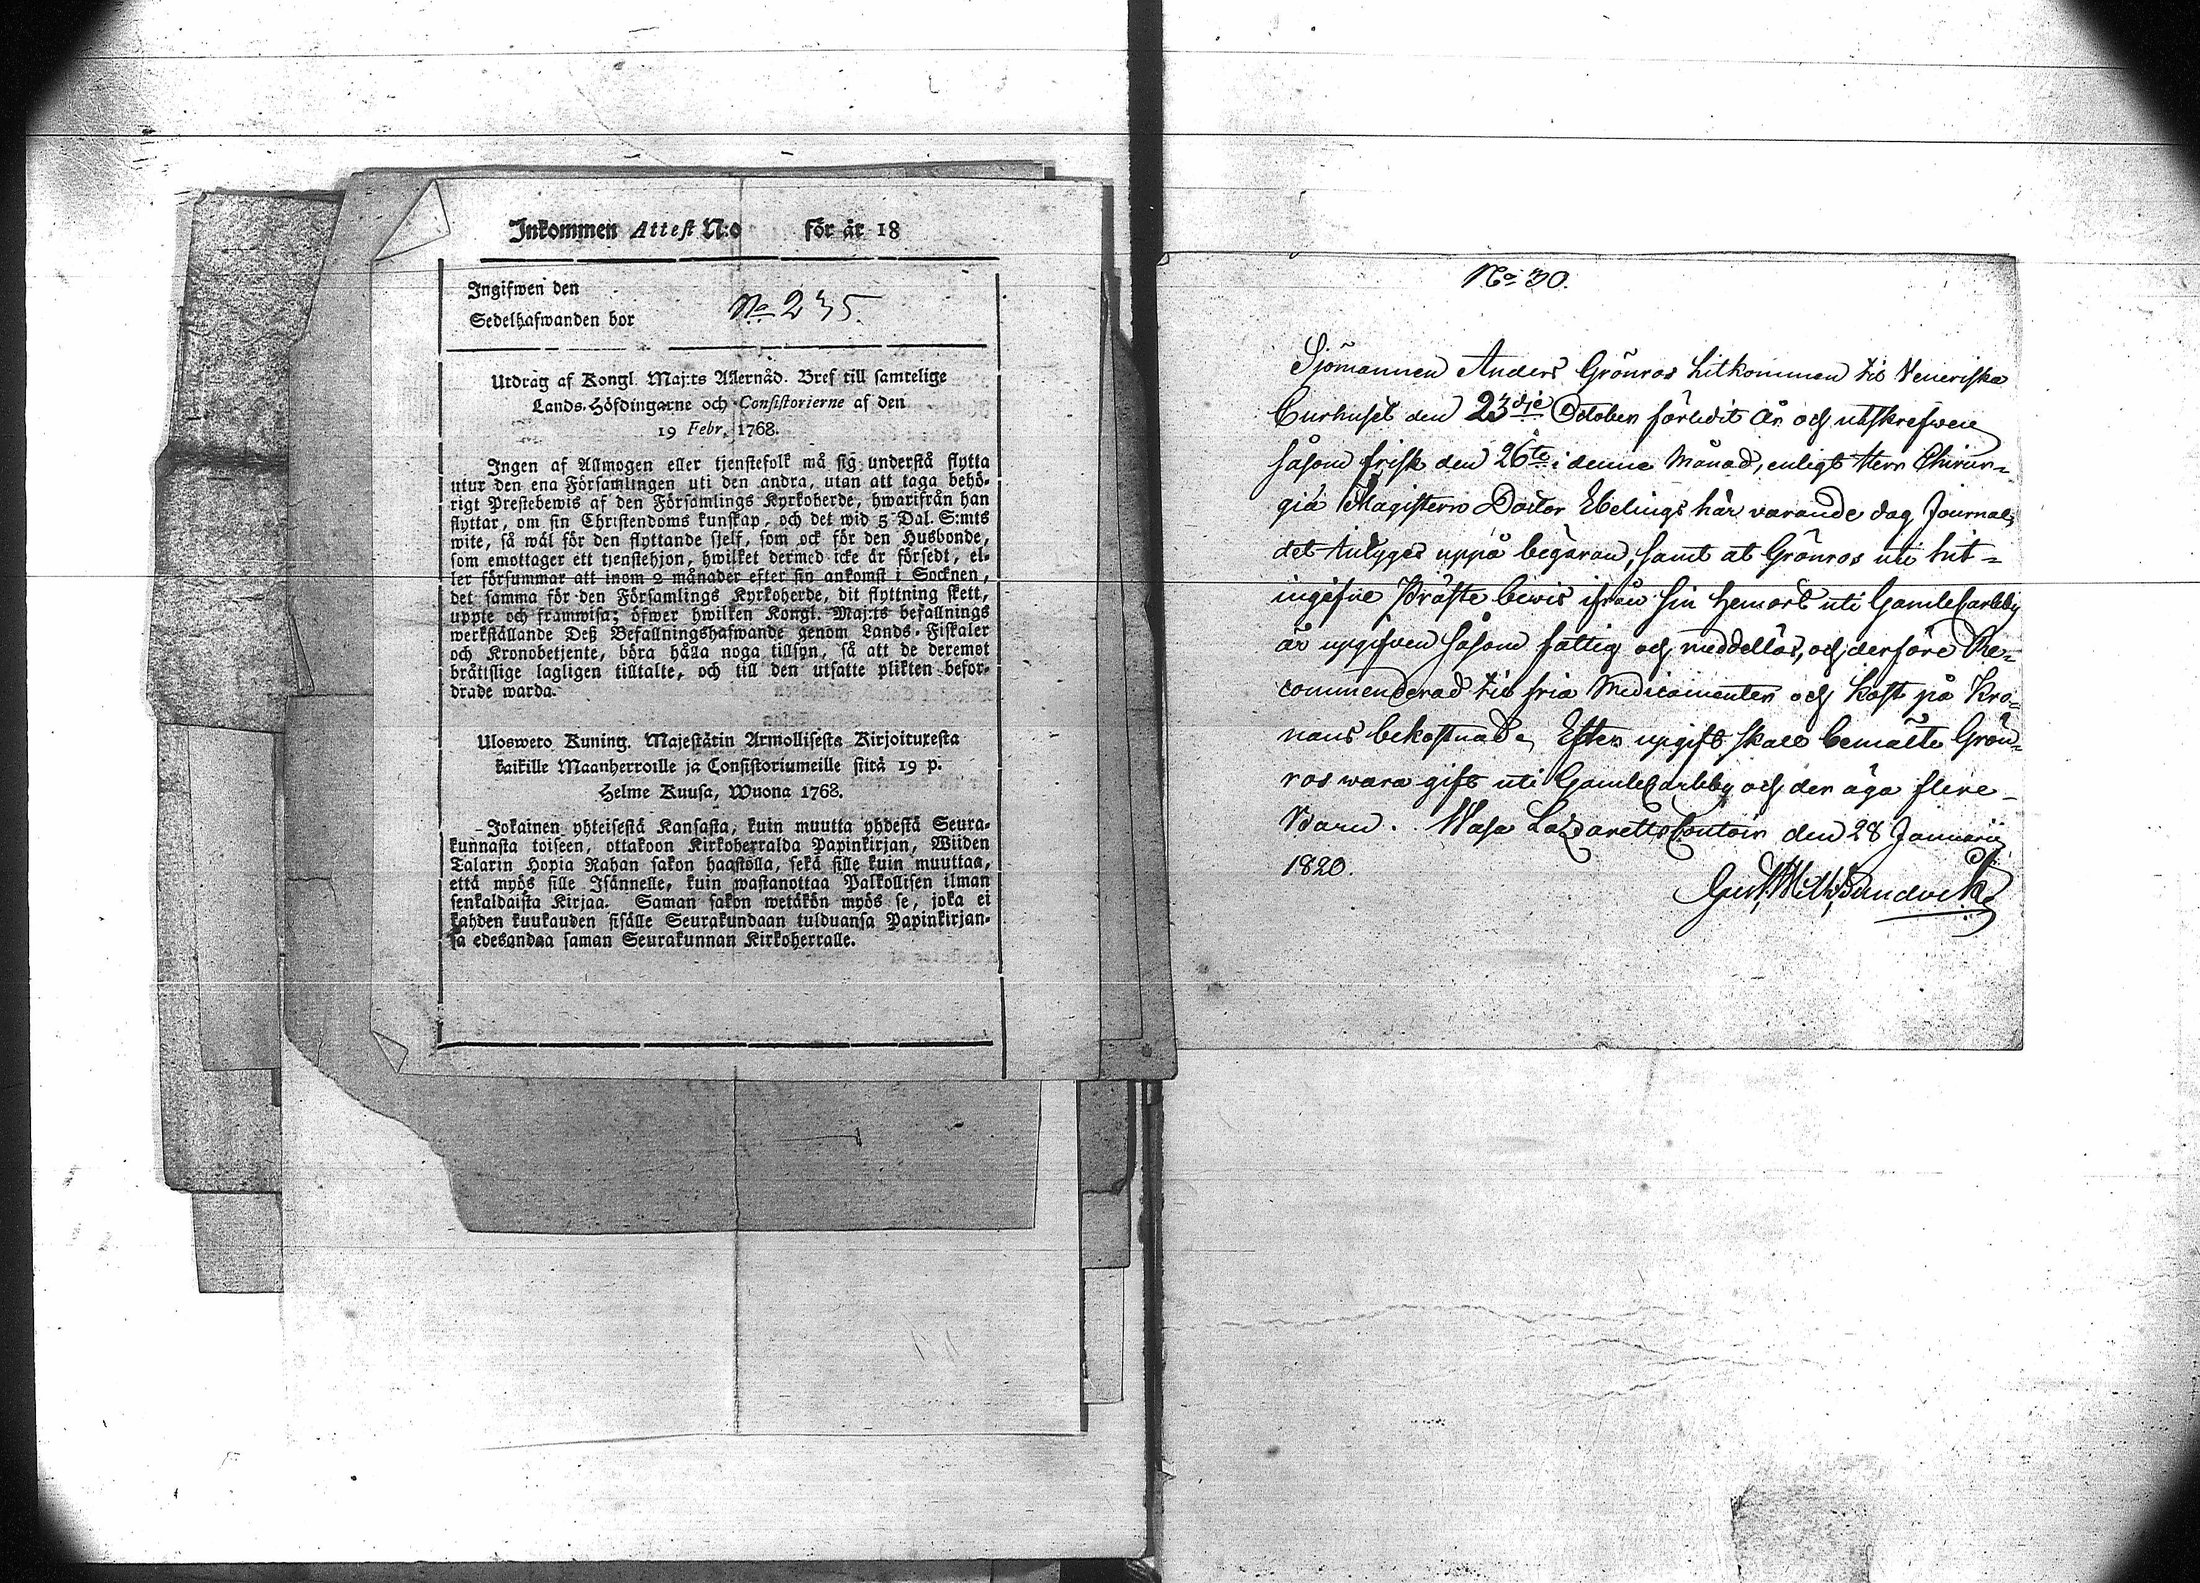 Inkommen Attest N:o för år 18
Ingifwen den
Sedelhafwanden bor
No 235.
Utdrag af Kongl. Maj:ts Allernåd. Bref till samtelige
Lands-Höfdingarne och Consistorierne af den
19 Febr. 1768.
Ingen af Allmogen eller tjenstefolk må sig understå flytta
utur den ena Församlingen uti den andra, utan att taga behö-
rigt Prestebewis af den Församlings Kyrkoherde, hwarifrån han
flyttar, om sin Christendoms kunskap, och det wid 5 Dal. S:mts
wite, så wäl för den flyttande sjelf, som ock för den Husbonde,
som emottager ett tjenstehjon, hwilket dermed icke är försedt, el-
ler försummar att inom 2 månader efter sin ankomst i Socknen,
det samma för den Församlings Kyrkoherde, dit flyttning skett,
uppte och framwisa; öfwer hwilken Kongl. Maj:ts befallnings
werkställande Deß Befallningshafwande genom Lands-Fiskaler
och Kronobetjente, böra hålla noga tillsyn, så att de deremot
bråttslige lagligen tilltalte, och till den utsatte plikten befor-
drade warda.
Ulosweto Kuning. Majestätin Armollisesta Kirjoituxesta
kaikille Maanherroille ja Consistoriumeille siitä 19 p.
Helme Kuusa, Wuona 1768.
Jokainen yhteisestä Kansasta, kuin muutta yhdestä Seura-
kunnasta toiseen, ottakoon Kirkoherralda Papinkirjan, Wiiden
Talarin Hopia Rahan sakon haastolla, sekä sille kuin muuttaa,
että myös sille Isännelle, kuin wastanottaa Palkollisen ilman
senkaldaista Kirjaa. Saman sakon wetäkön myös se, joka ei
kahden kuukauden sisälle Seurakundaan tulduansa Papinkirjan-
sa edesandaa saman Seurakunnan Kirkoherralle.
No 30.
Sjömannen Anders Grönros hitkommen til Veneriska
Curhuset den 23dje October förledit år och utskrefwen
såsom frisk den 26te i denne Månad, enligt Herr Chirur-
giæ Magistern Doctor Ebelings här varande dag Journal,
det intygas uppå begäran, samt at Grönros uti hit-
ingifne Präste bewis ifrån sin hemort uti GamleCarleby
är uppgifven såsom fattig och meddellös, och derföre Re-
commenderad til fria Medicamenter och kost på Kro-
nans bekostnad. Efter upgift skall bemälte Grön-
ros wara gift uti GamleCarleby och der äga flere
Barn. Wasa Lazaretts Contoir den 28 Januarii
1820.
Gust. Wilh. Sundvik